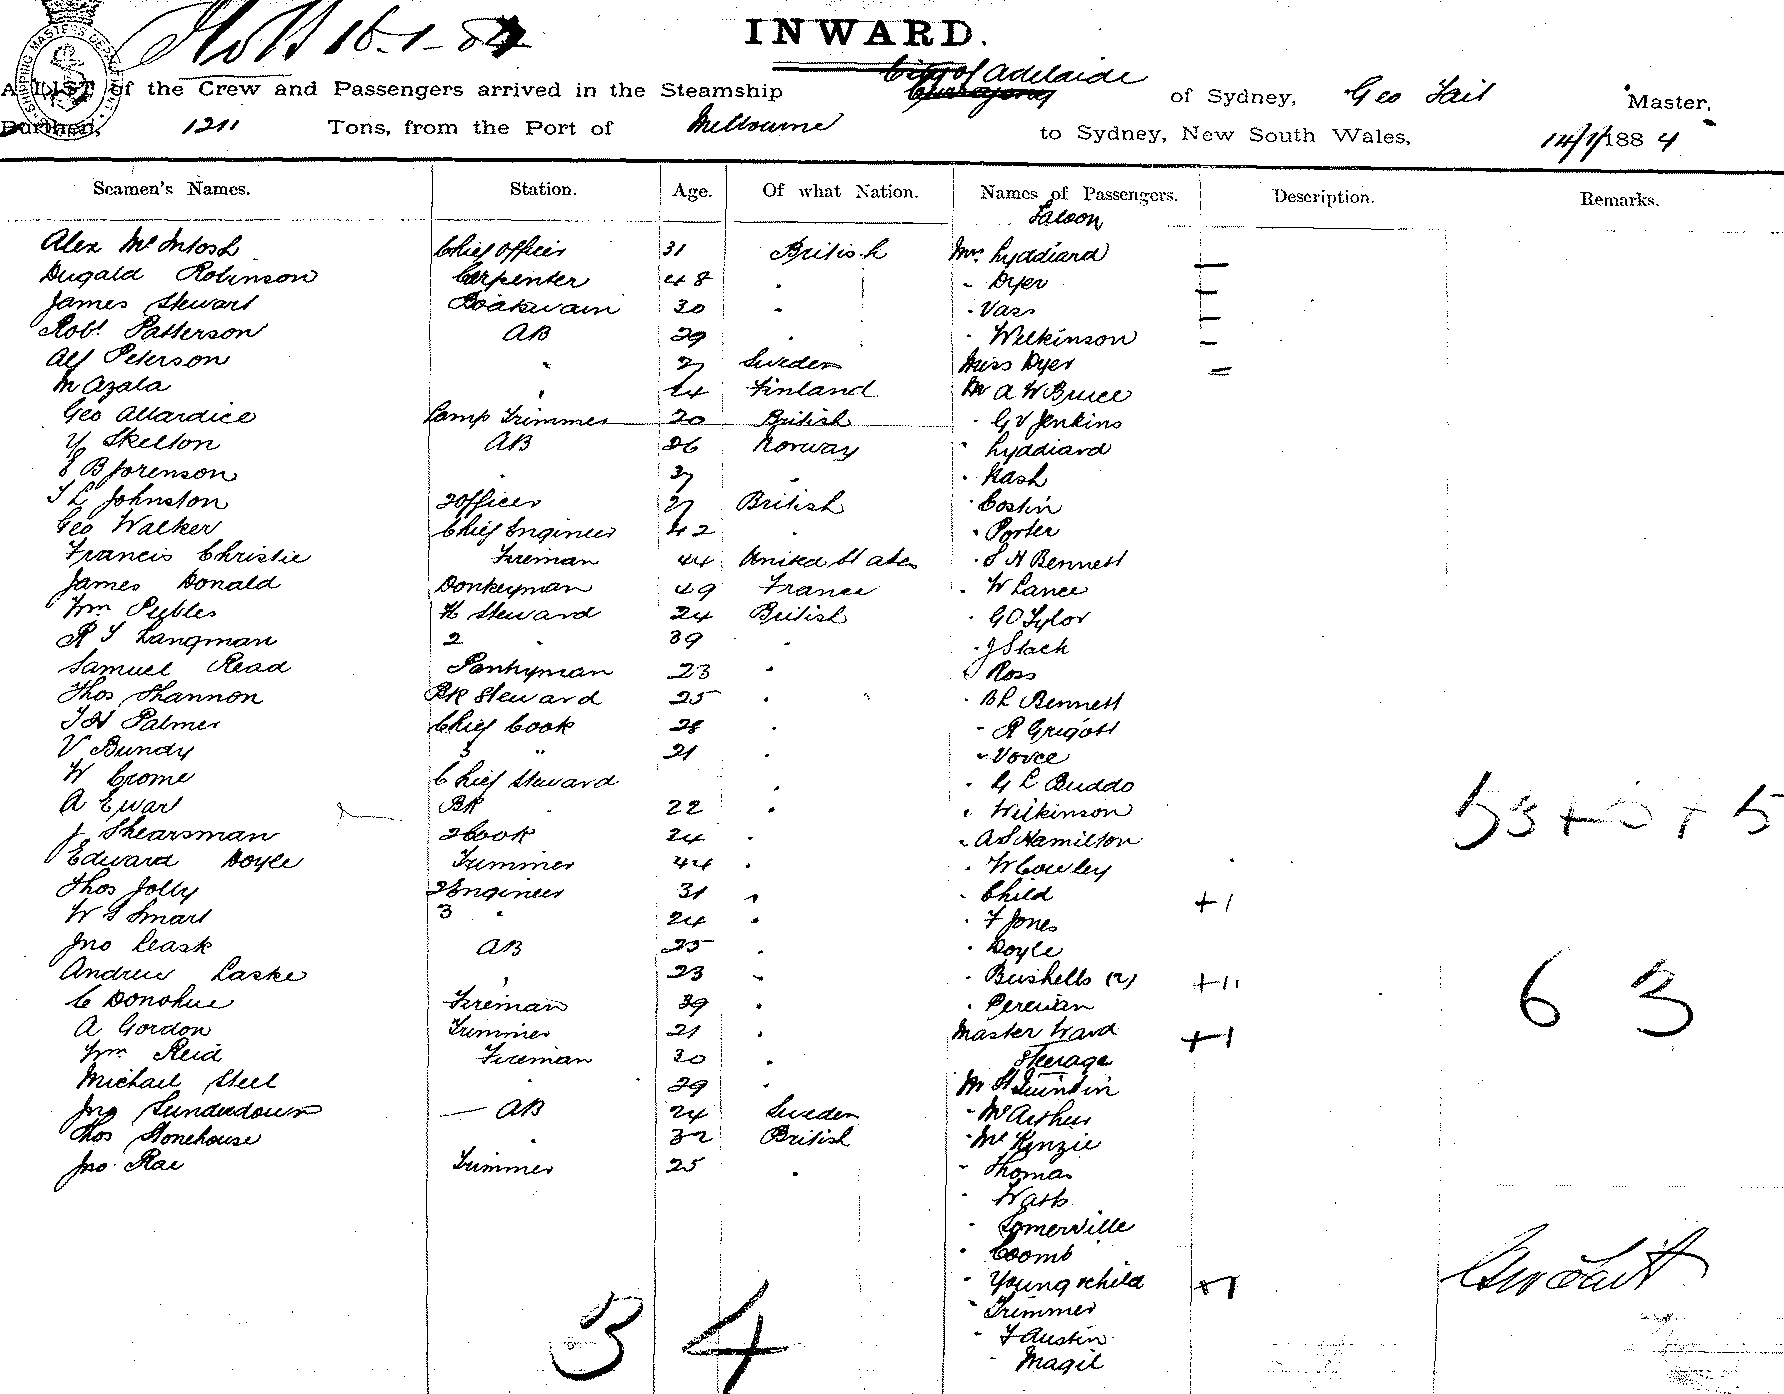 16-1-84
INWARD.
City of Adelaide
A LIST of the Crew and Passengers arrived in the Steamship of Sydney, Geo Tait Master,
Burthen, 1211 Tons, from the Port of Melbourne to Sydney, New South Wales, 14/1/1884
Seamen's Names. Station. Age. Of what Nation. Names of Passengers. Description. Remarks.
Saloon
Alex McIntosh Chief Officer 31 British Mrs Lyddiard —
Dugald Robinson Carpenter 48 " " Dyer —
James Stewart Boatswain 30 " " Vass —
Robt Patterson AB 29 " " Wilkinson —
Alf Peterson " 27 Sweden Miss Dyer =
M Azala " 24 Finland Mr A W Bruce
Geo Allardice Lamp Trimmer 20 British " G V Jenkins
Y Skelton AB 26 Norway " Lyddiard
E Bjorenson " 37 " " Nash
T L Johnston 2 Officer 27 British " Costin
Geo Walker Chief Engineer 42 " " Porter
Francis Christie Fireman 44 United States " S H Bennett
James Donald Donkeyman 49 France " W Lance
Wm Peebles F Steward 24 British " G O Tylor
R T Langman 2 " 39 " " J Stack
Samuel Read Pantryman 23 " " Ross
Thos Shannon BR Steward 25 " " B L Bennett
T H Palmer Chief Cook 28 " " R Grigott
V Bundy 3 " 21 " " Vovce
W Crome Chief Steward " " G L Buddo
A Ewar BR 22 " " Wilkinson
J Shearsman 2 Cook 24 " " A S Hamilton
Edward Doyle Trimmer 44 " " W Cowley
Thos Jolly 2 Engineer 31 " " Child +1
W S Smart 3 " 24 " " F Jones
Jno Leask AB 25 " " Doyle
Andrew Laske " 23 " " Bushells (2) +11
C Donohue Fireman 39 " " Perewan
A Gordon Trimmer 21 " Master Ward +1
Wm Reid Fireman 30 " Steerage
Michael Steel " 29 " Mr St Quintin
Jno Sunderdown — AB 24 Sweden " McArthur
Thos Stonehouse " 32 British " McKenzie
Jno Rae Trimmer 25 " " Thomas
" Watts
" Somerville
" Coomb
" Young & child +1
" Trimmer
" F Austin
" Magil
53 + 5 + 5
63
Geo Tait
34